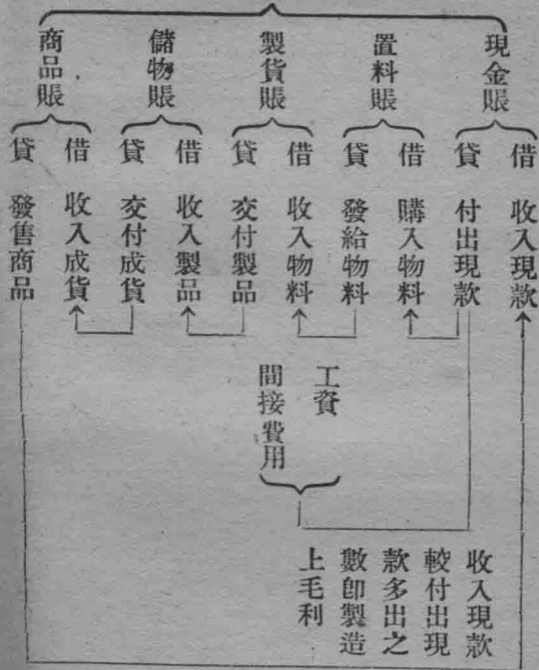 現金賬
借 收入現款
貸 付出現款
置料賬
借 購入物料
貸 發給物料
製貨賬
借 收入物料
貸 交付製品
儲物賬
借 收入製品
貸 交付成貨
商品賬
借 收入成貨
貸 發售商品
工資
間接費用
收入現款
較付出現
款多出之
數卽製造
上毛利